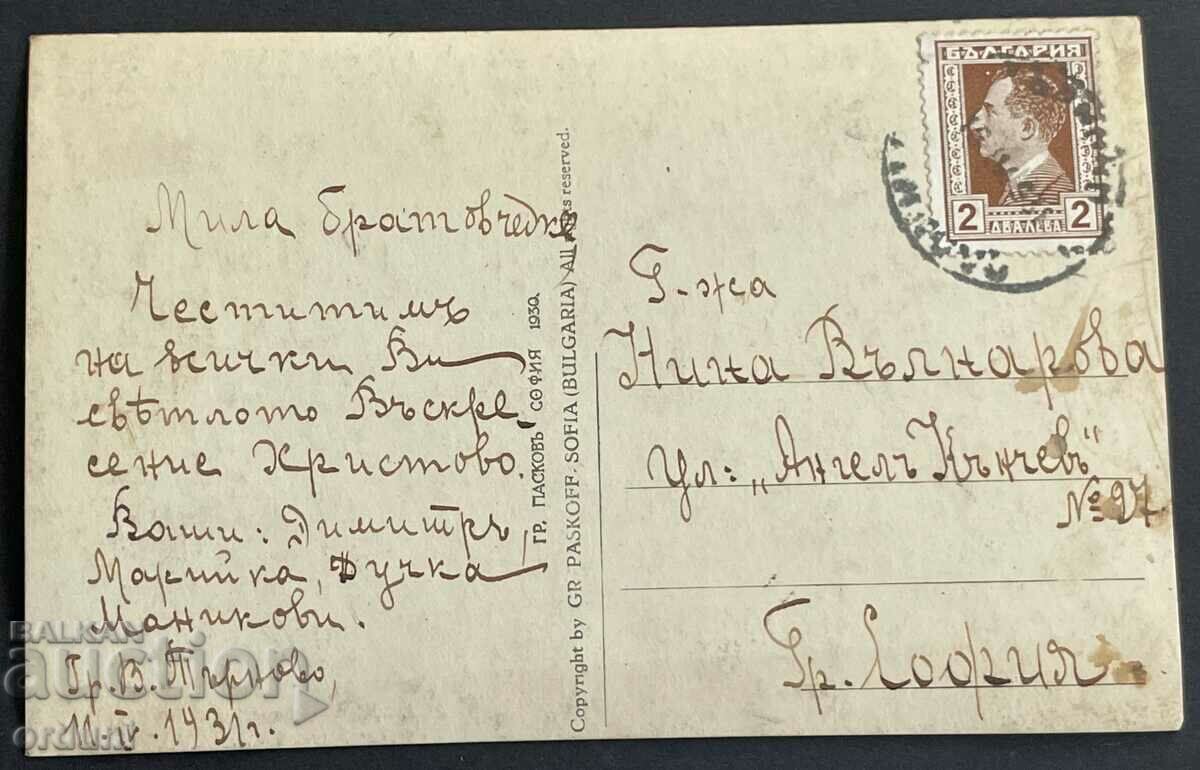 Мила братовчедке
Честитимъ
на всички Ви
свѣтлото Въскре-
сение Христово.
Ваши: Димитръ,
Марийка, Дучка
Маникови.
Гр. В. Търново,
1931 г.
ГР. ПАСКОВЪ СОФИЯ 1930.
Copyright by GR PASKOFF- SOFIA (BULGARIA) All rights reserved.
БЪЛГАРИЯ
2 2
ДВА ЛЕВА
Г-жа
Нина Вълнарова
Ул: „Ангелъ Кънчевъ"
№ 27
Гр. София
BALKAN
auction